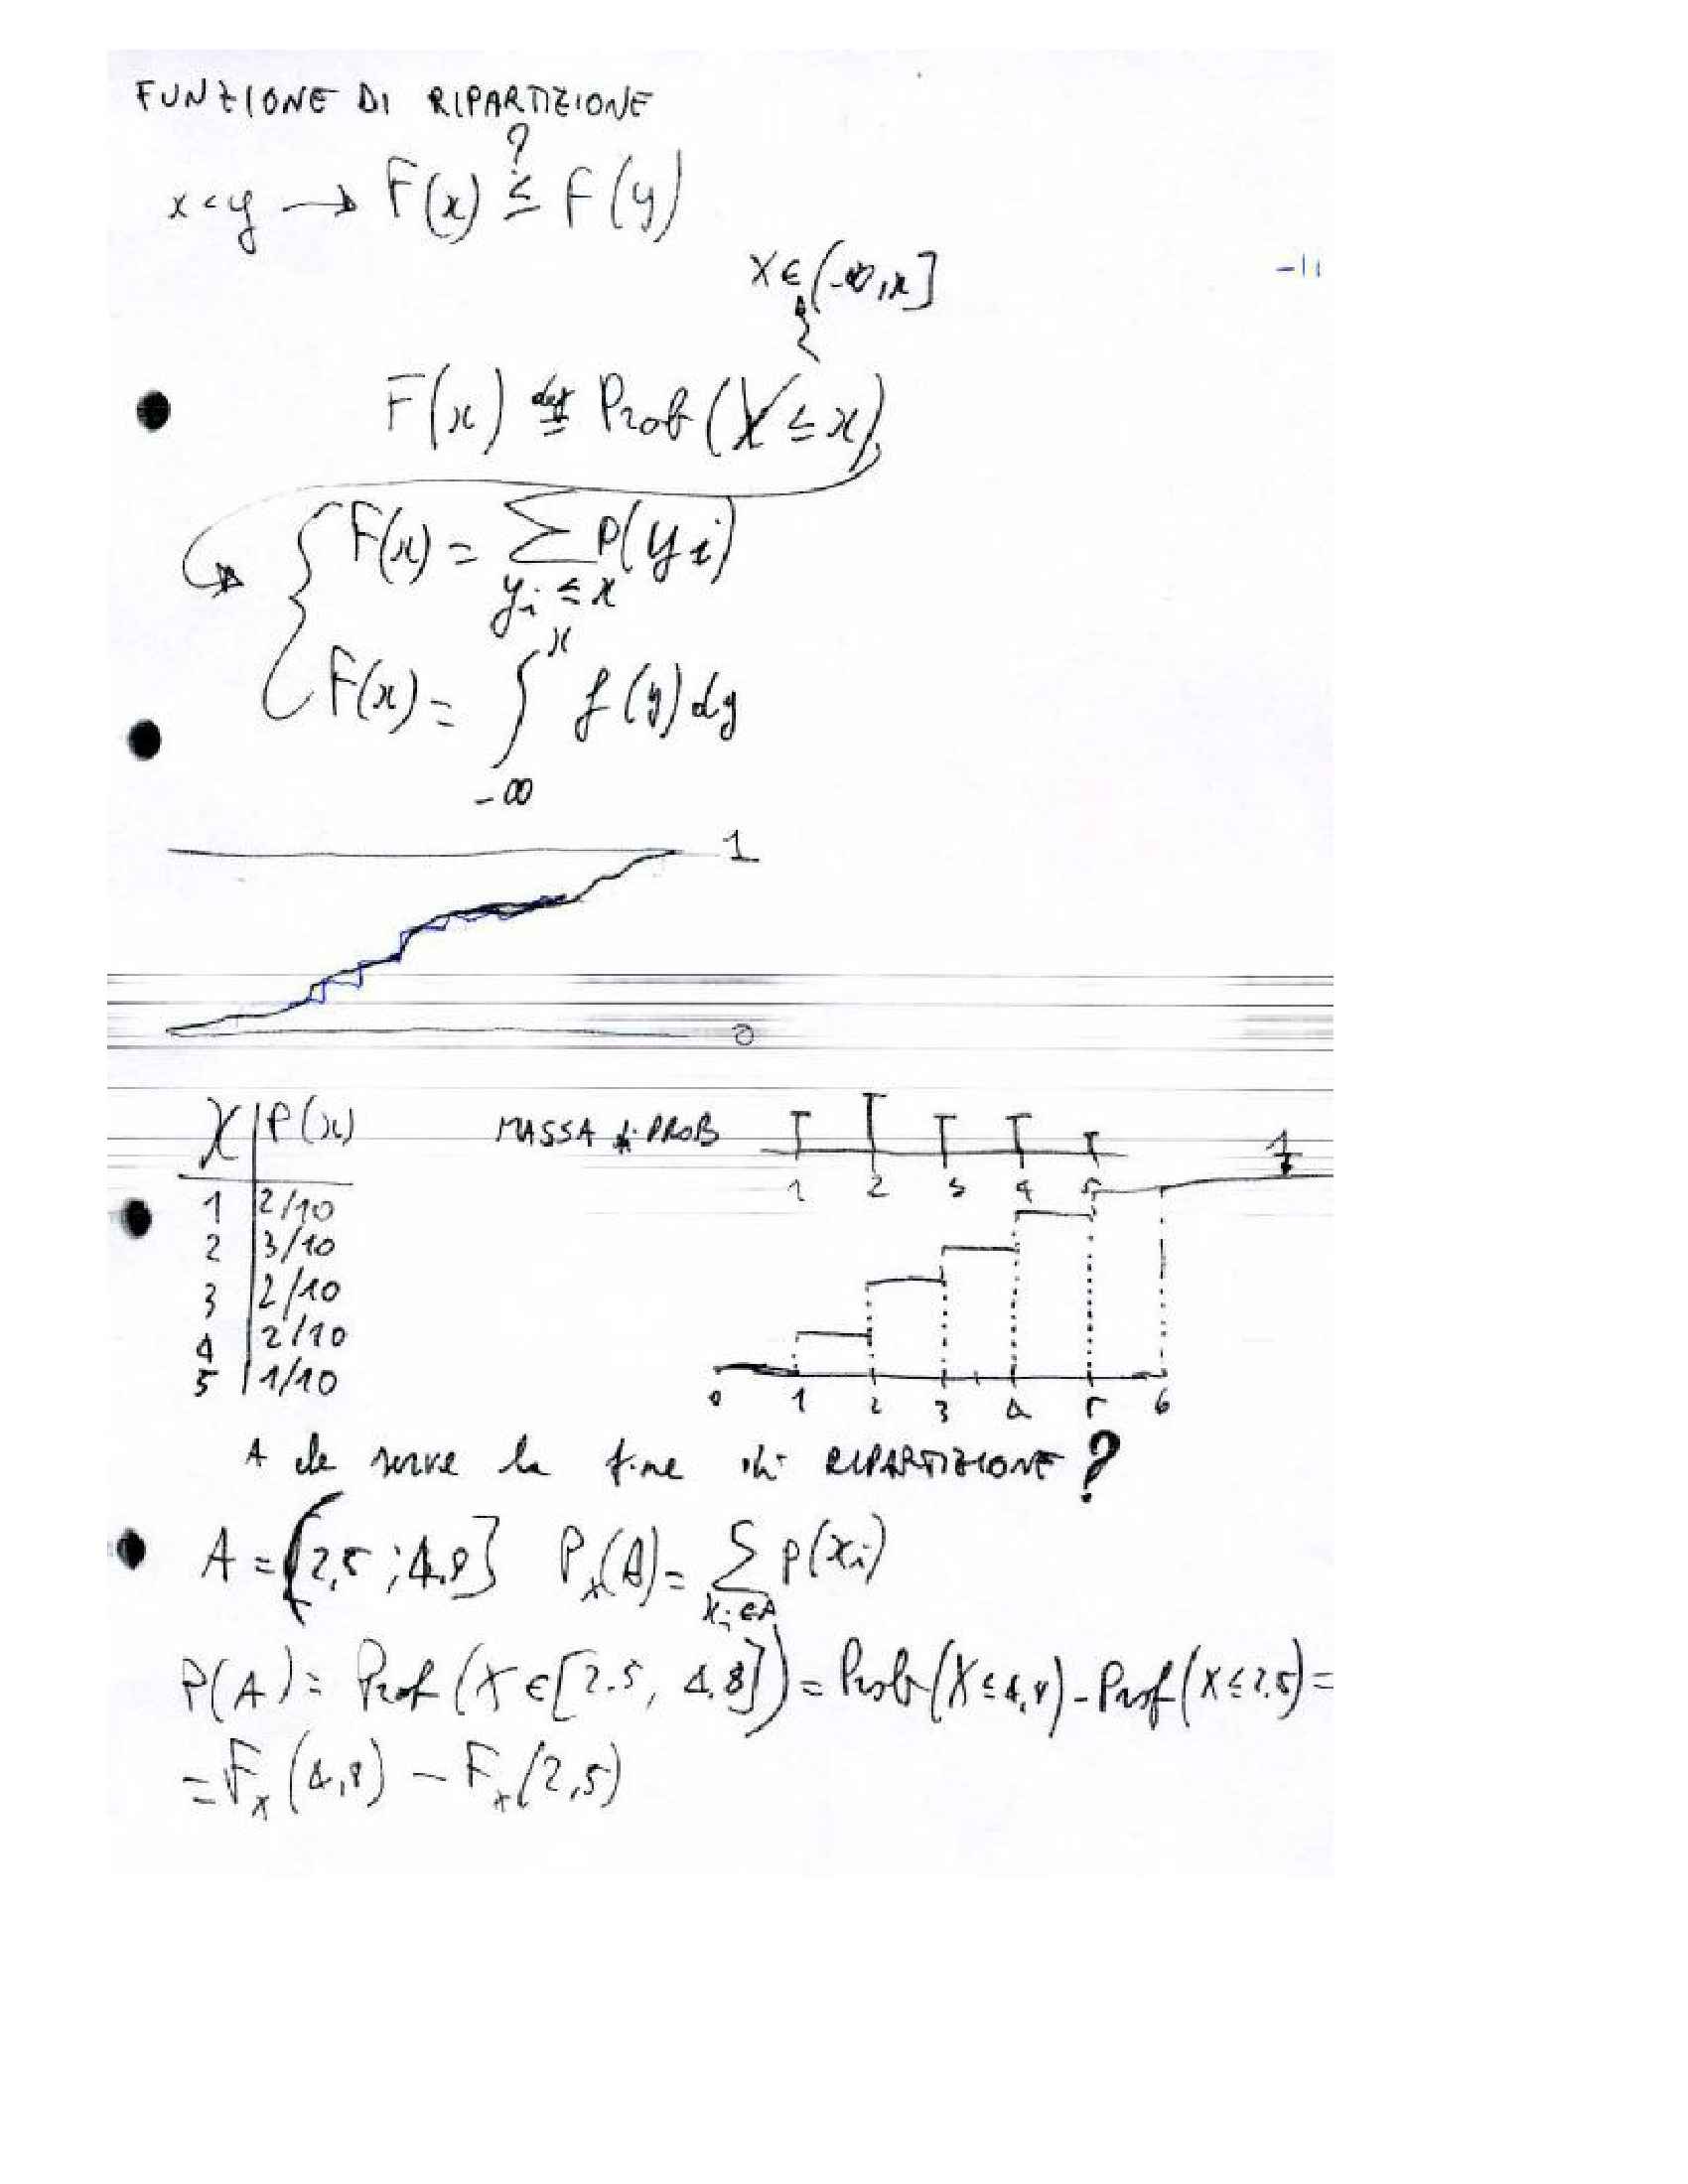 FUNZIONE DI RIPARTIZIONE
?
x < y → F(x) ≤ F(y)
X ∈ (-∞, x]
F(x) def = Prob(X ≤ x)
F(x) = ∑ P(yi)
yi ≤ x
F(x) = ∫ f(y) dy
x
-∞
1
0
X | P(x)
1 | 2/10
2 | 3/10
3 | 2/10
4 | 2/10
5 | 1/10
MASSA di PROB
1 2 3 4 5
1
0 1 2 3 4 5 6
A che serve la f.ne di RIPARTIZIONE ?
A = [2,5 ; 4,8] Px(A) = ∑ p(xi)
xi ∈ A
P(A) = Prob(X ∈ [2.5, 4.8]) = Prob(X ≤ 4,8) - Prob(X ≤ 2,5) =
= Fx(4,8) - Fx(2,5)